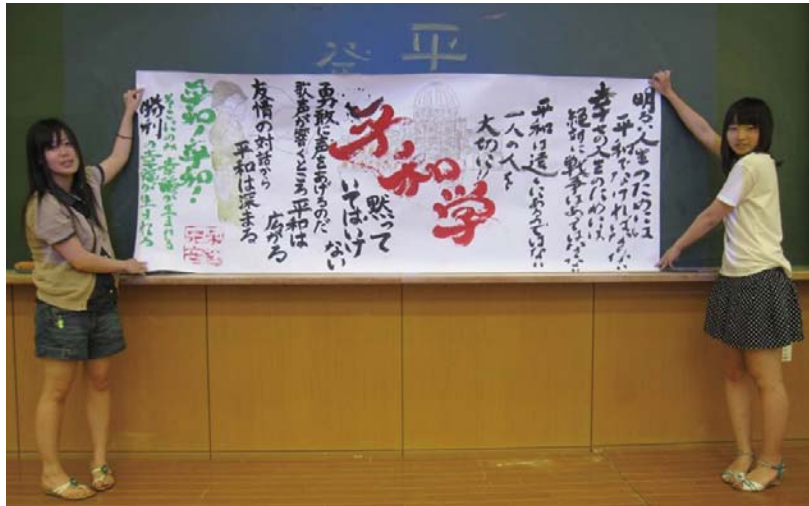 平
明るい人生のためには
平和でなければならない
幸せの人生のためには
絶対に戦争はあってはならない
平和は遠くにあるのではない
一人の人を
大切に!!
平和学
黙って
いてはいけ
ない
勇敢に声をあげるのだ
歌声が響くところ平和は
広がる
友情の対話から
平和は深まる
平和!平和!
そこにのみ 幸福が生まれる
勝利の